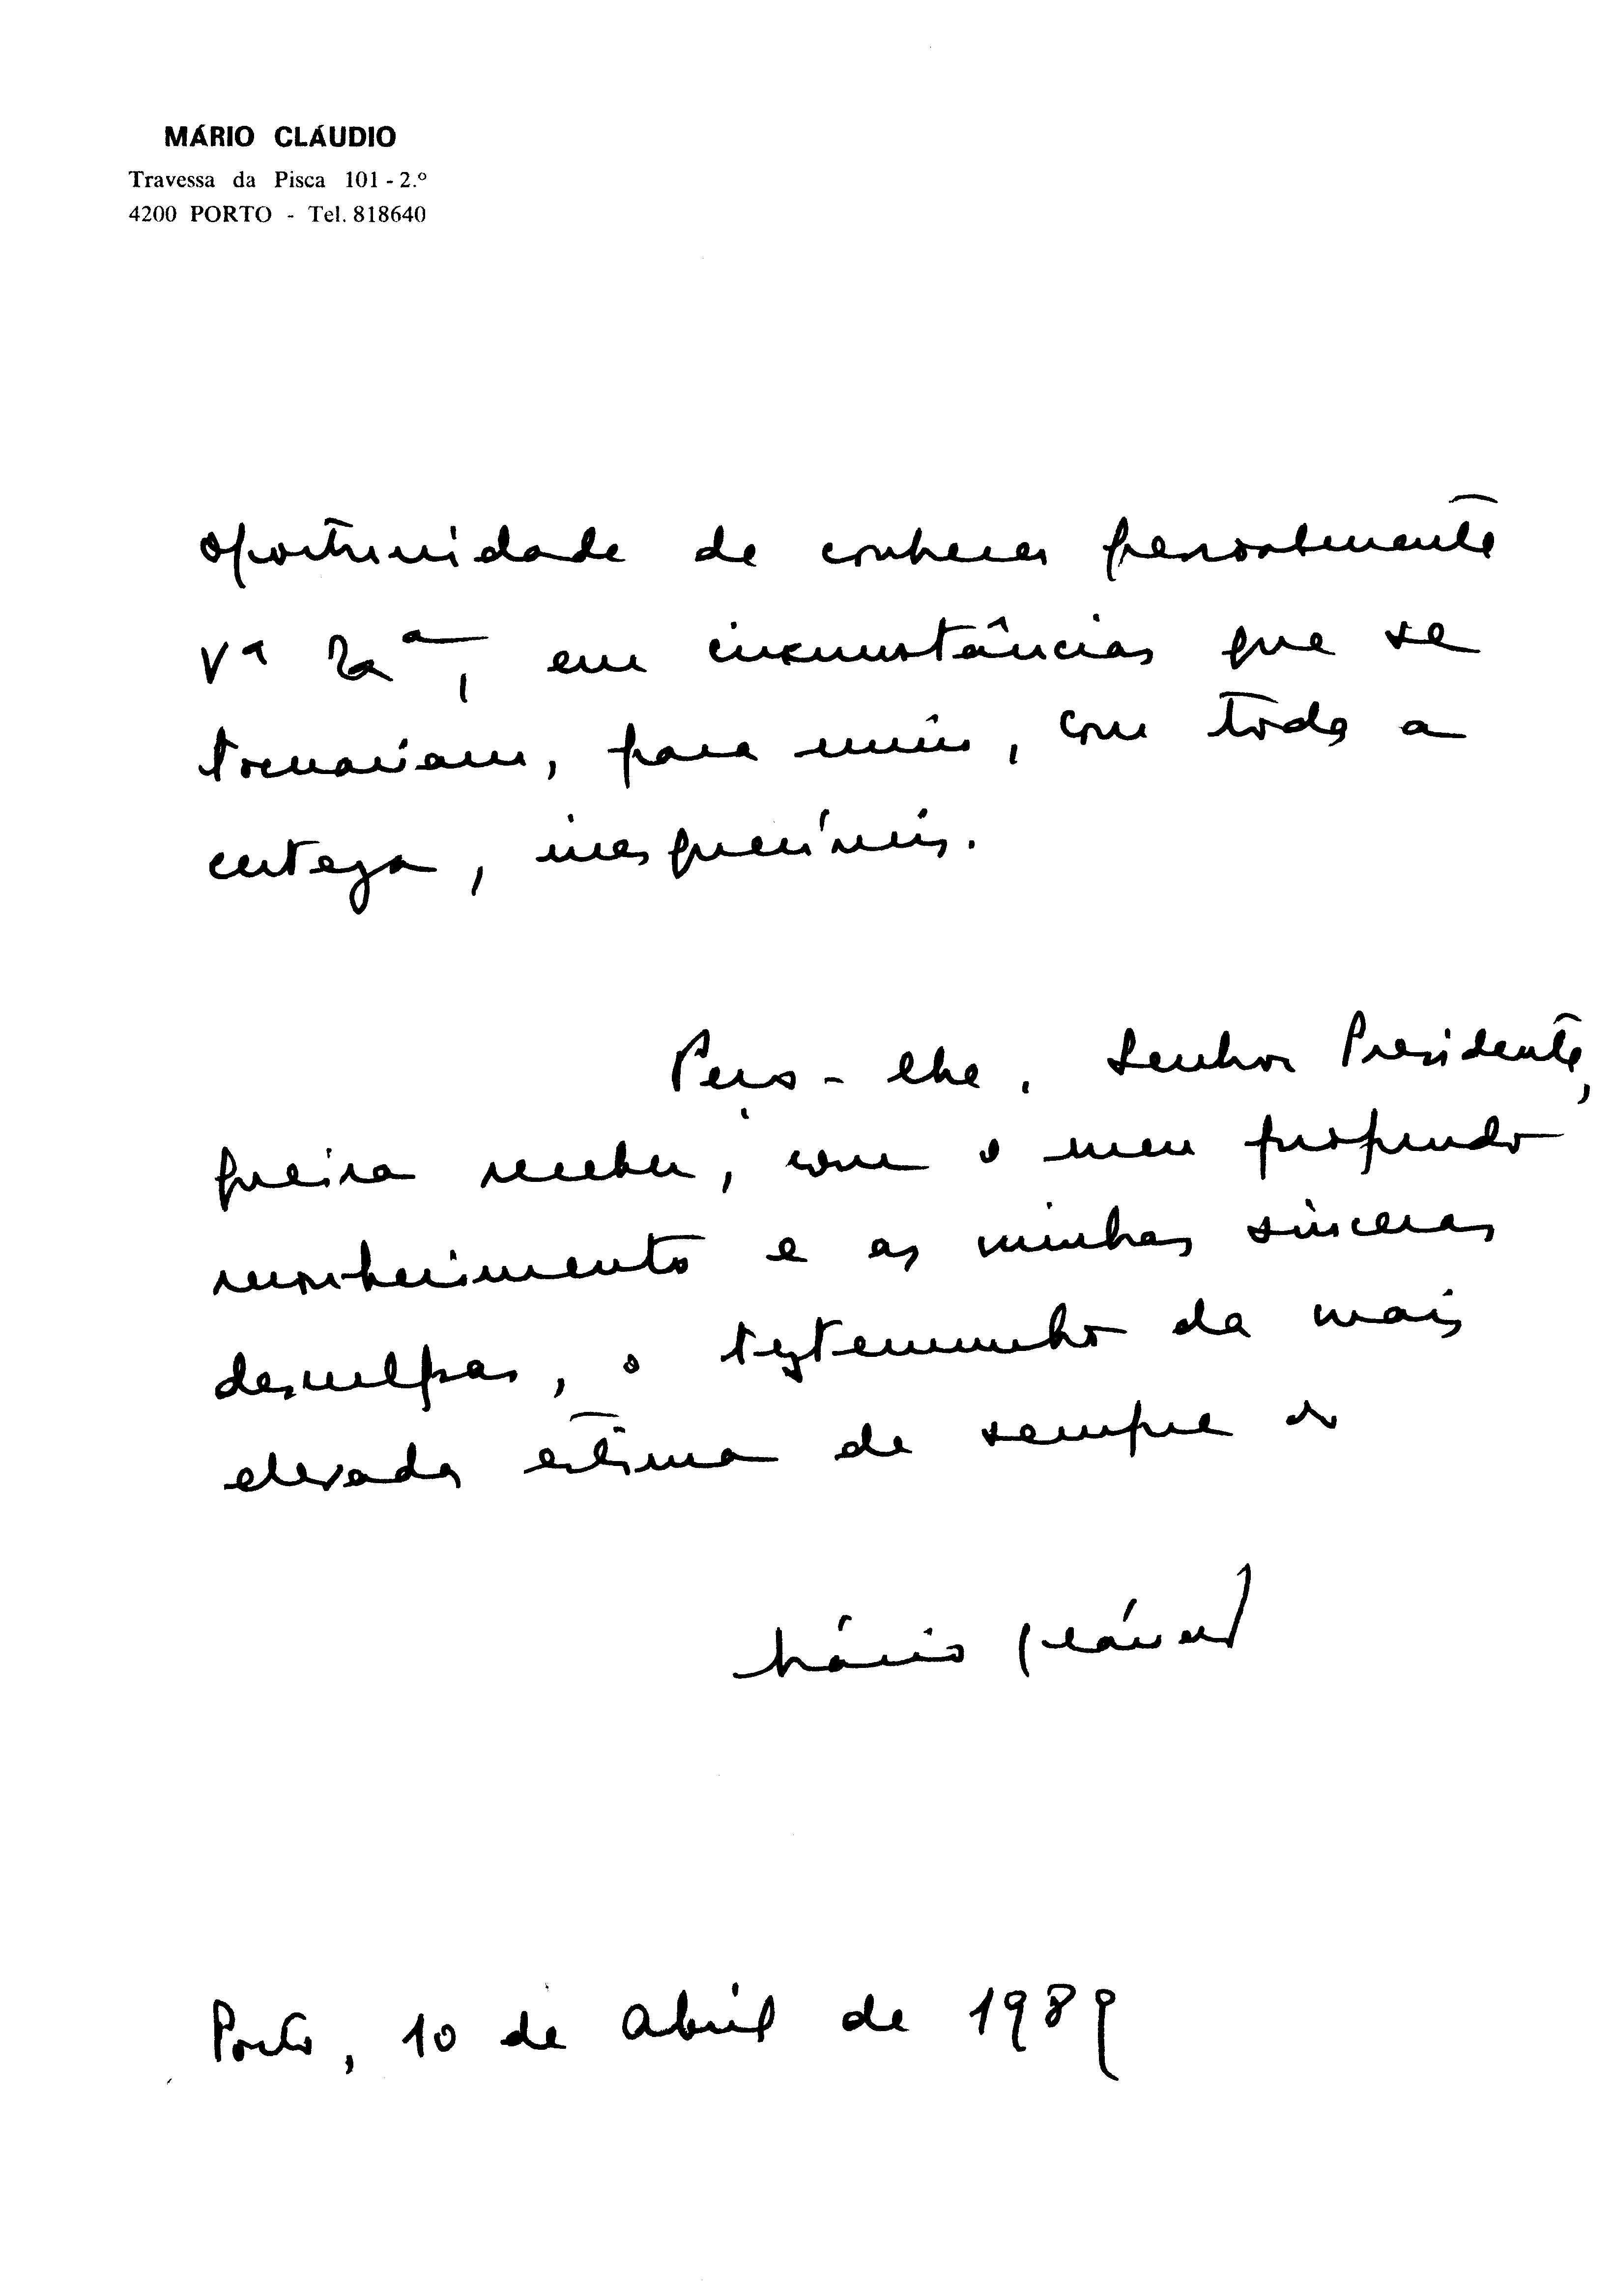 MÁRIO CLÁUDIO
Travessa da Pisca 101 - 2.º
4200 PORTO - Tel. 818640
oportunidade de conhecer pessoalmente
Vª Exª, em circunstâncias que se
tornariam, para mim, com toda a
certeza, inesquecíveis.
Peço-lhe, Senhor Presidente,
queira receber, com o meu profundo
reconhecimento e as minhas sinceras
desculpas, o testemunho da mais
elevada estima de sempre do
Mário Cláudio
Porto, 10 de Abril de 1989